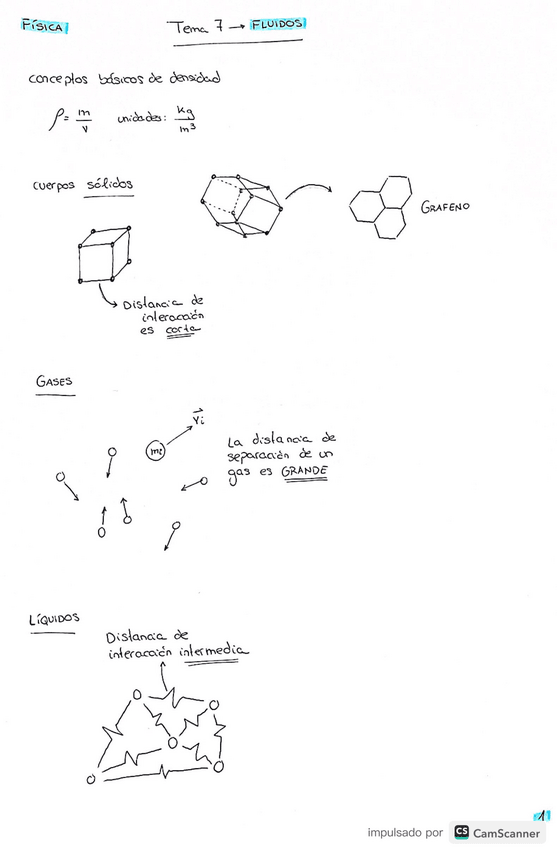 FÍSICA
Tema 7 → FLUIDOS
conceptos básicos de densidad
ρ = m/v unidades: kg/m³
cuerpos sólidos
GRAFENO
Distancia de
interacción
es corta
GASES
v⃗i
mi
La distancia de
separación de un
gas es GRANDE
LÍQUIDOS
Distancia de
interacción intermedia
1
impulsado por CS CamScanner